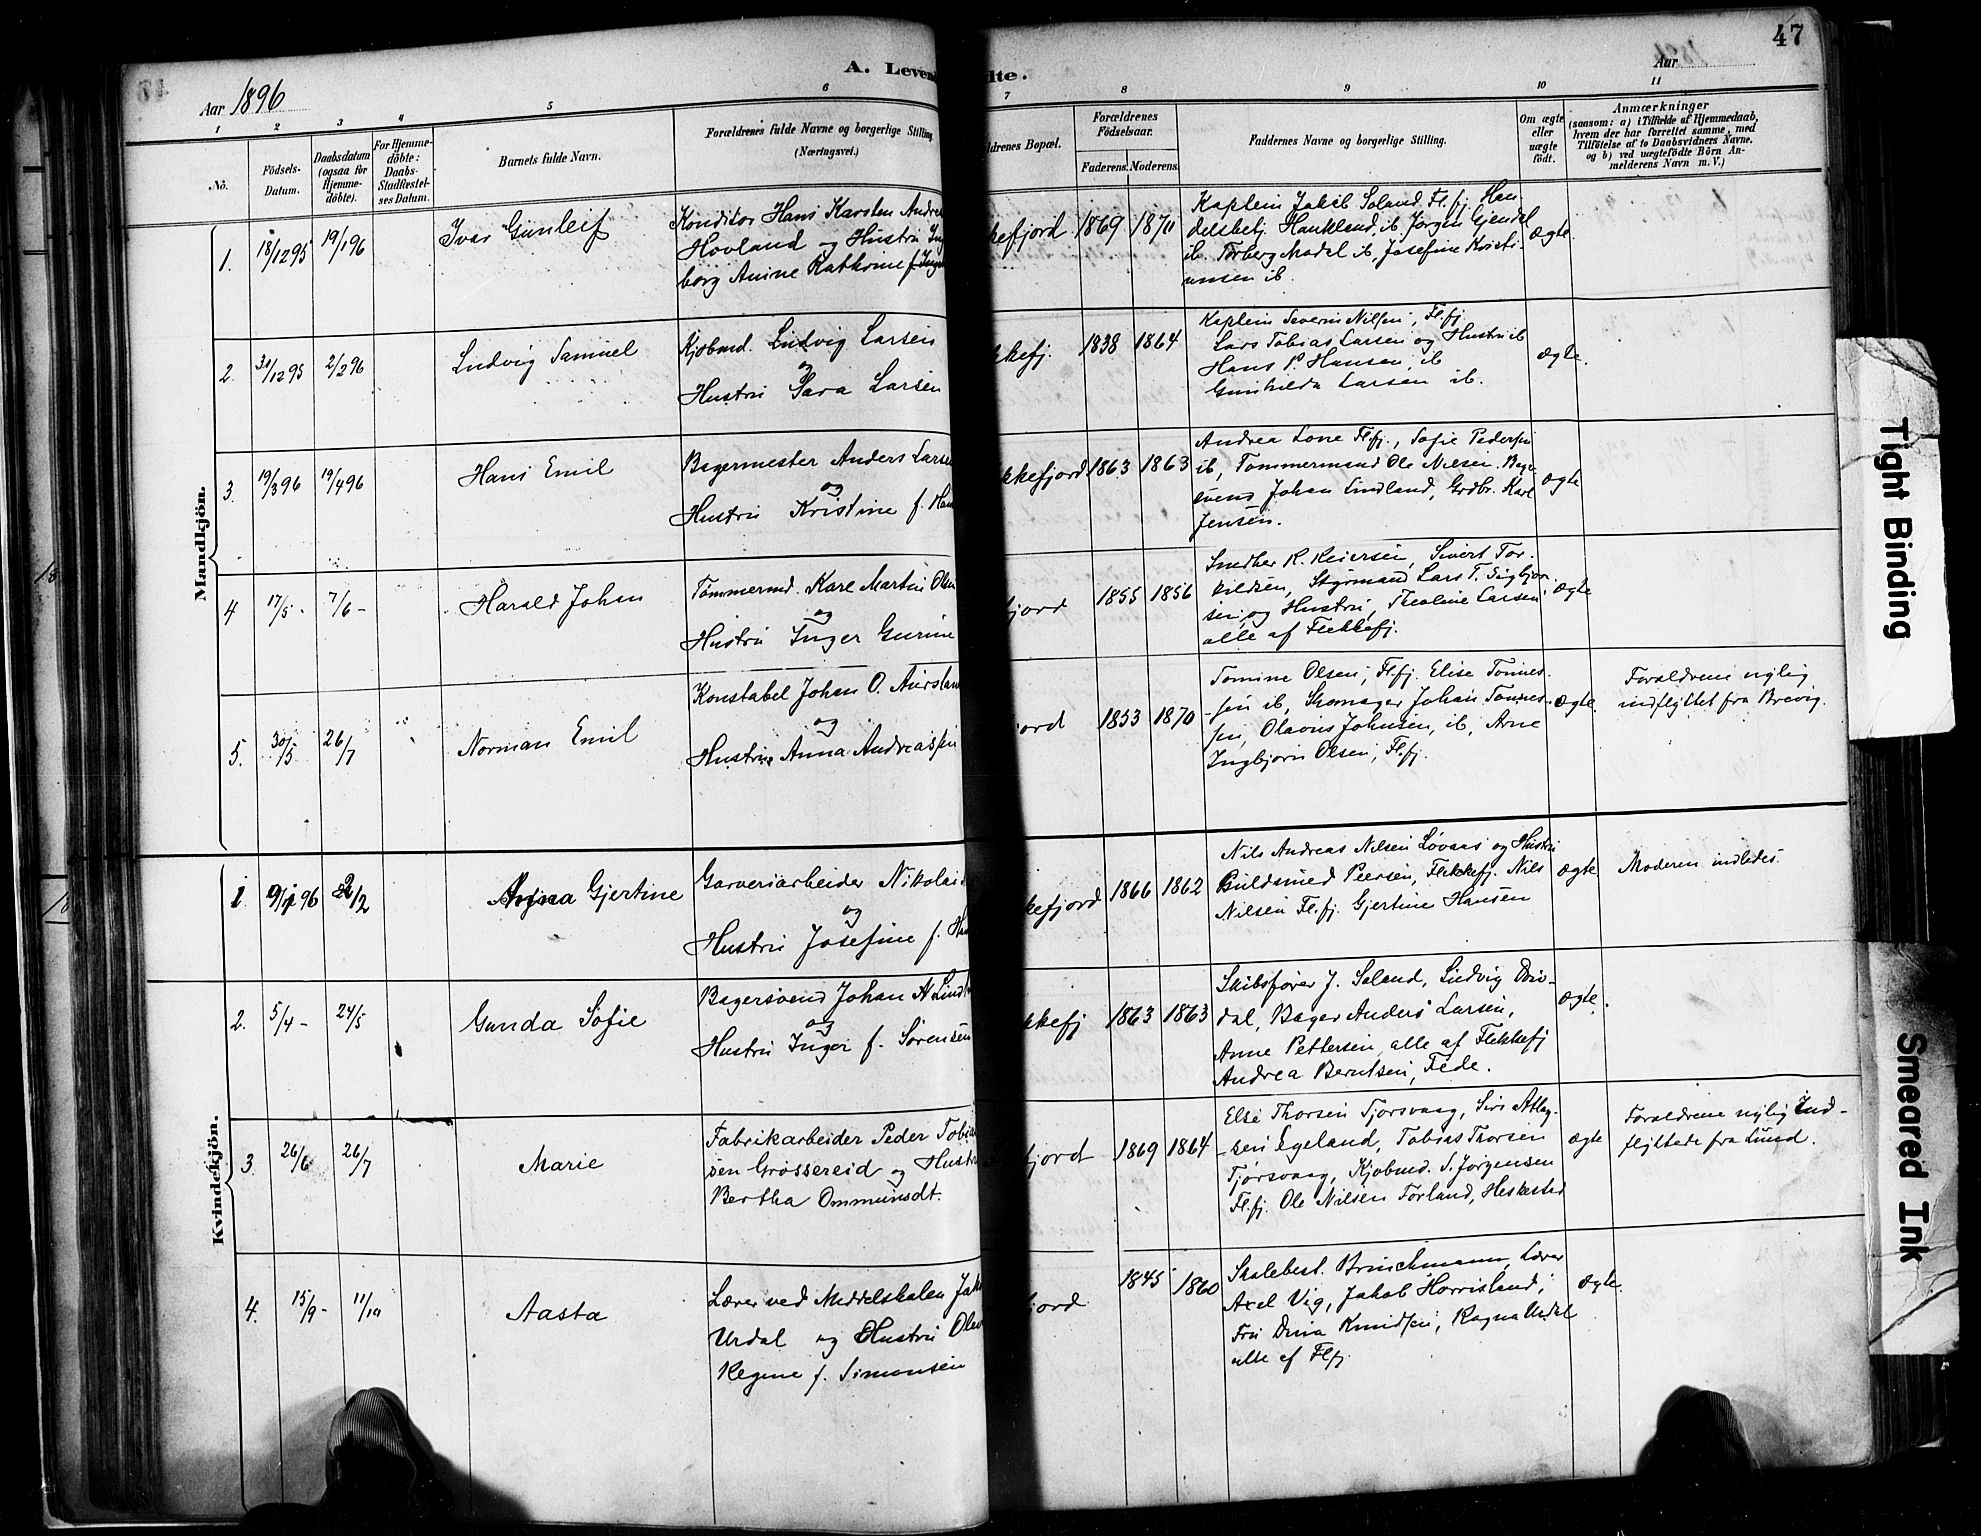 47
A. Levend
dte.
Aar 1896
Aar
1 2 3 4 5 6 7 8 9 10 11
No.
Födsels-
Datum.
Daabsdatum
(ogsaa for
Hjemme-
döbte).
For Hjemme-
döbte:
Daabs-
Stadfæstel-
ses Datum.
Barnets fulde Navn.
Forældrenes fulde Navne og borgerlige Stilling
(Næringsvei.)
ldrenes Bopæl.
Forældrenes
Födselsaar.
Faderens. Moderens.
Faddernes Navne og borgerlige Stilling.
Om ægte
eller
uægte
födt.
Anmærkninger
(saasom: a) i Tilfælde af Hjemmedaab,
hvem der har forrettet samme, med
Tilföielse af to Daabsvidners Navne,
og b) ved uægtefödte Börn An-
melderens Navn m. V.)
Mandkjön.
1. 18/12 95 19/1 96
Ivar Gunleif
Konditor Hans Karsten Andrea
Hovland og Hustru Ing
borg Anine Kathrine f.
kefjord 1869 1870
Kaptein Jakob Soland Fl.fj. Han
delsbetj. Haukland, ib. Jørgen Gjendal
ib. Torberg Modal ib, Josefine Kristi-
ansen ib.
ægte.
2. 31/12 95 2/2 96
Ludvig Samuel
Kjøbmd. Ludvig Larsen
og
Hustru Sara Larsen
kkefj. 1838 1864
Kaptein Severin Nilsen, Fl.fj.
Lars Tobias Larsen og Hustru ib
Hans P. Hansen, ib
Gunhilda Larsen ib.
ægte.
3. 19/3 96 19/4 96
Hans Emil
Bagermester Anders Larse
og
Hustru Kristine f. Han
kkefjord 1863 1863
Andrea Lone Fl.fj., Sofie Pedersen
ib, Tømmermand Ole Nilsen. Bager
svend Johan Lindland, Grdbr. Karl
Jensen.
ægte
4 17/5 - 7/6 -
Harald Johan
Tømmermd. Karl Martin Olsen
og
Hustru Inger Gurine
fjord 1855 1856
Smedker R. Reiersen, Sivert Tor-
kildsen, Styrmand Lars T. Sigbjør-
sen og Hustru, Theoline Larsen
alle af Flekkefj.
ægte
5. 30/5 26/7
Norman Emil
Konstabel Johan O. Aursland
og
Hustru Anna Andreassen
jord 1853 1870
Tomine Olsen, Fl.fj. Elise Tønnes-
sen ib, Skomager Johan Tønnes-
sen, Olavus Johnsen, ib, Arne
Ingbjørn Olsen, Fl.fj.
ægte.
Forældrene nylig
indflyttet fra Brevig.
Kvindekjön.
1 9/1 96 2/2
Anna Gjertine
Garveriarbeider Nikolai
og
Hustru Josefine f. Han
kefjord 1866 1862
Nils Andreas Nilsen Løvaas og Hustru
Guldsmed Peersen, Flekkefj. Nils
Nilsen Fl.fj. Gjertine Hansen
ægte
Moderen indledes.
2. 5/4 - 24/5
Gunda Sofie
Bagersvend Johan A Lindl
og
Hustru Inger f. Sørensen
kkefj 1863 1863
Skibsfører J. Soland, Ludvig Driv-
dal, Bager Anders Larsen,
Anne Pettersen alle af Flekkefj
Andrea Berntsen, Fede.
ægte.
3. 26/6 26/7
Marie
Fabrikarbeider Peder Tobia
sen Grøssereid og Hustru
Bertha Ommundsdt.
fjord 1869 1864
Else Thorsen Tjørsvaag, Sivs Atlag-
sen Egeland, Tobias Thorsen
Tjørsvaag, Kjøbmd. S. Jørgensen
Fl.fj. Ole Nilsen Torland, Heskestad
ægte
Forældrene nylig ind-
flyttede fra Lund.
4. 15/9 - 11/10
Aasta
Lærer ved Middelskolen Jak
Urdal og Hustru Olav
Regine f. Simonsen
jord 1845 1860
Skolebest. Brinchmann, Lærer
Axel Vig, Jakob Horrisland,
Fru Dina Knudsen, Ragna Urdal
alle af Flfj.
ægte.
Tight Binding
Smeared Ink